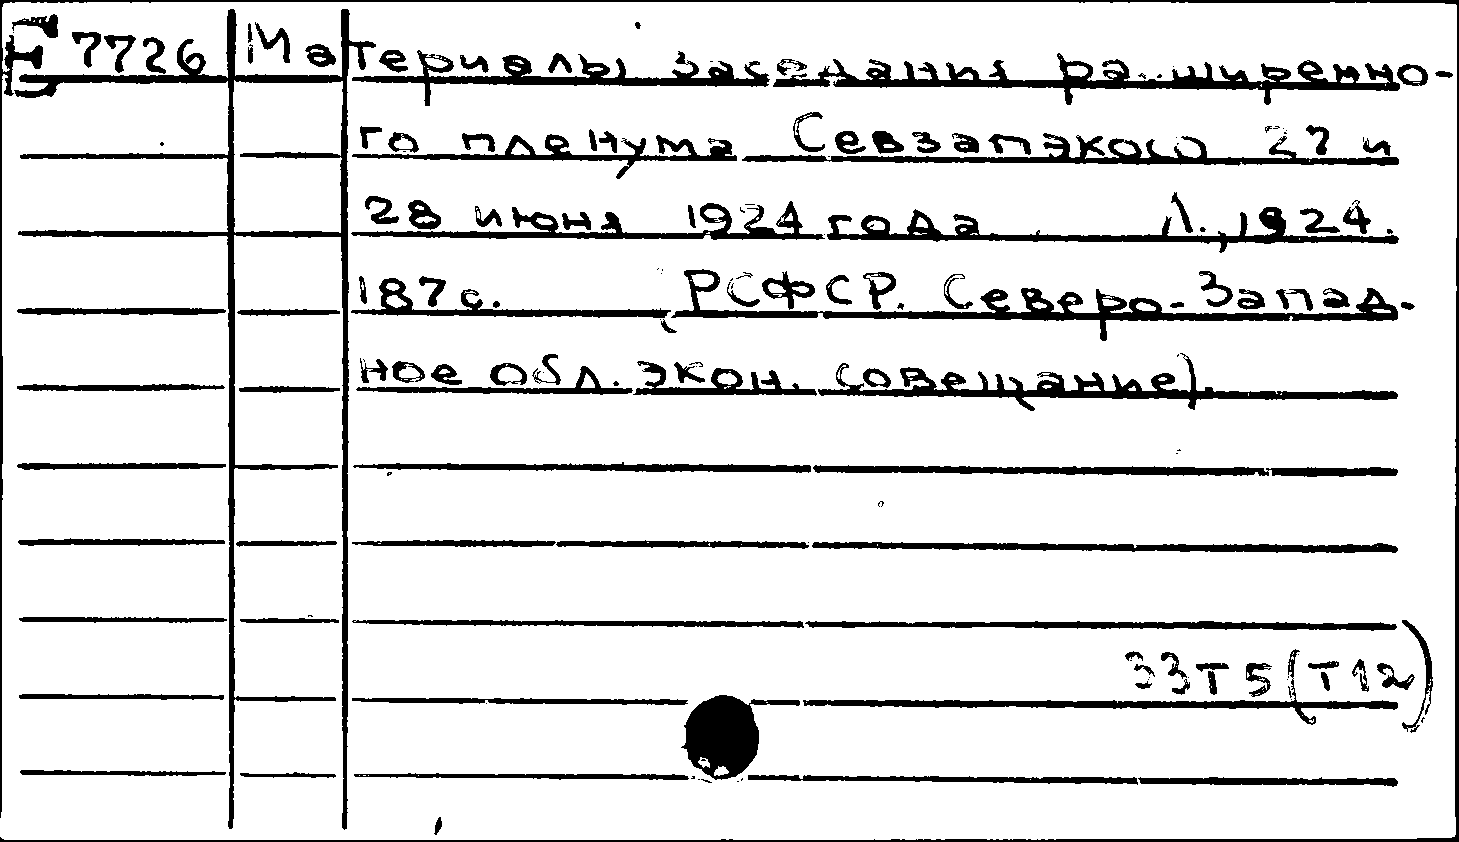 Е 7726 Материалы заседания расширенно-
го пленума Севзапэкосо 27 и
28 июня 1924 года Л., 1924.
187 с. (РСФСР. Северо-Запад-
ное обл. экон. совещание).
33Т5(Т12)